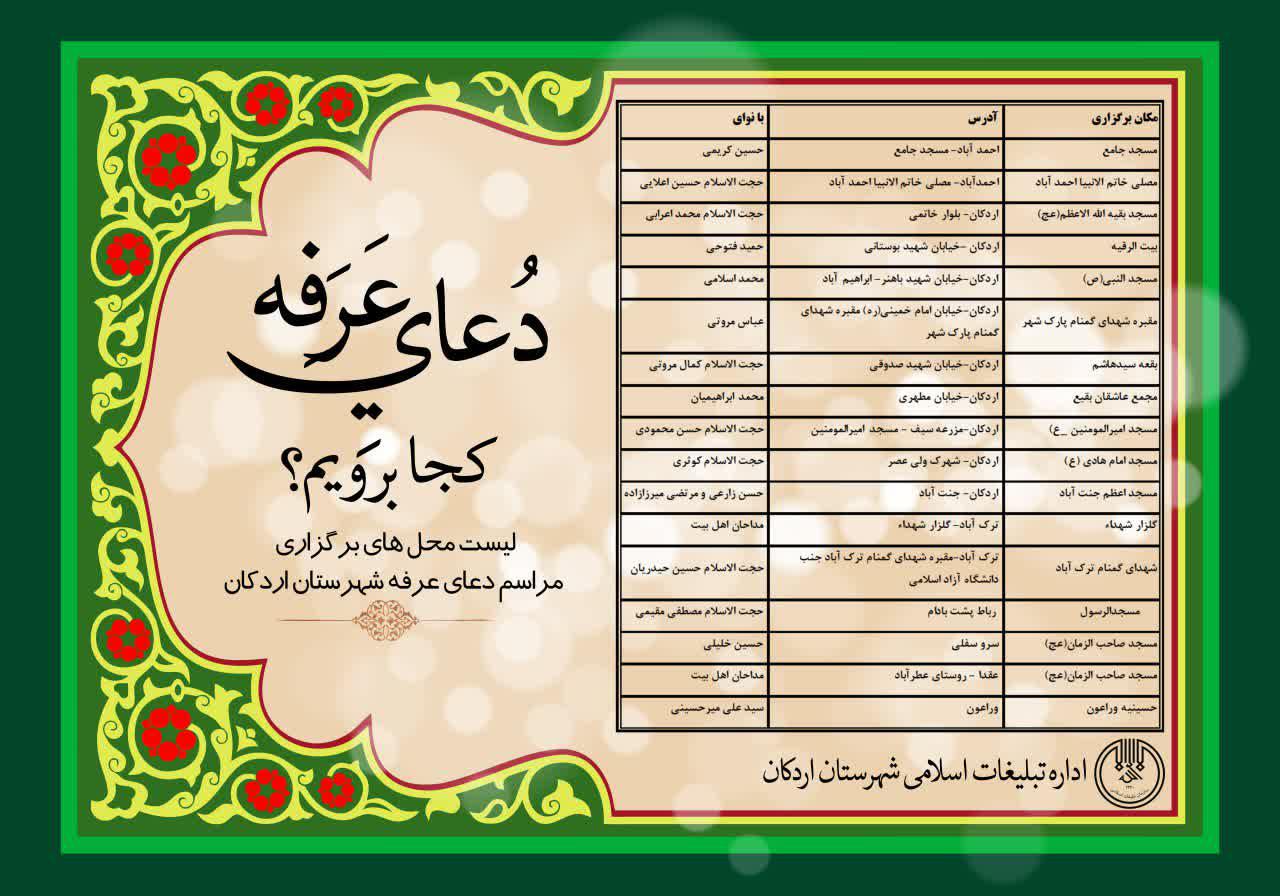 دُعایِ عَرَفه
کجا برَویم؟
لیست محل های برگزاری
مراسم دعای عرفه شهرستان اردکان
مکان برگزاری آدرس با نوای
مسجد جامع احمد آباد- مسجد جامع حسین کریمی
مصلی خاتم الانبیا احمد آباد احمدآباد- مصلی خاتم الانبیا احمد آباد حجت الاسلام حسین اعلایی
مسجد بقیه الله الاعظم(عج) اردکان- بلوار خاتمی حجت الاسلام محمد اعرابی
بیت الرقیه اردکان -خیابان شهید بوستانی حمید فتوحی
مسجد النبی(ص) اردکان-خیابان شهید باهنر- ابراهیم آباد محمد اسلامی
مقبره شهدای گمنام پارک شهر اردکان-خیابان امام خمینی(ره) مقبره شهدای
گمنام پارک شهر عباس مروتی
بقعه سیدهاشم اردکان-خیابان شهید صدوقی حجت الاسلام کمال مروتی
مجمع عاشقان بقیع اردکان-خیابان مطهری محمد ابراهیمیان
مسجد امیرالمومنین _ع) اردکان-مزرعه سیف - مسجد امیرالمومنین حجت الاسلام حسن محمودی
مسجد امام هادی (ع) اردکان- شهرک ولی عصر حجت الاسلام کوثری
مسجد اعظم جنت آباد اردکان- جنت آباد حسن زارعی و مرتضی میرزازاده
گلزار شهداء ترک آباد- گلزار شهداء مداحان اهل بیت
شهدای گمنام ترک آباد ترک آباد-مقبره شهدای گمنام ترک آباد جنب
دانشگاه آزاد اسلامی حجت الاسلام حسین حیدریان
مسجدالرسول رباط پشت بادام حجت الاسلام مصطفی مقیمی
مسجد صاحب الزمان(عج) سرو سفلی حسین خلیلی
مسجد صاحب الزمان(عج) عقدا - روستای عطرآباد مداحان اهل بیت
حسینیه وراعون وراعون سید علی میرحسینی
اداره تبلیغات اسلامی شهرستان اردکان
سازمان تبلیغات اسلامی